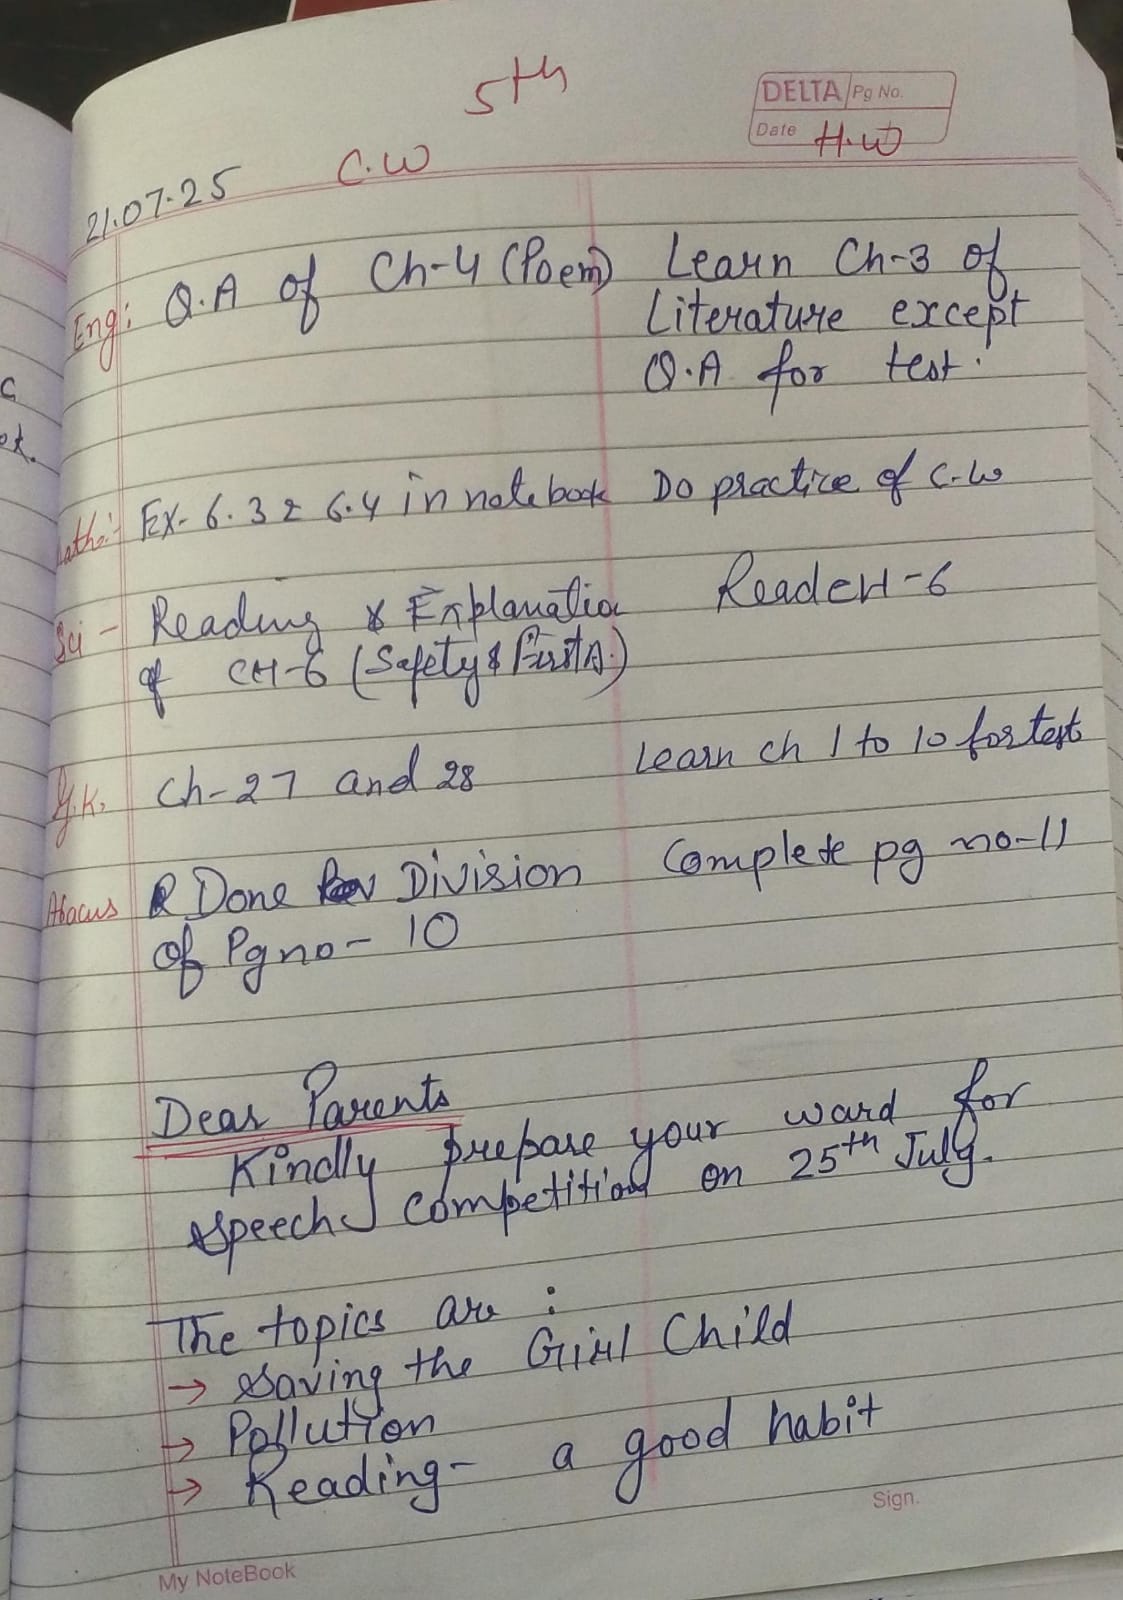 5th
DELTA Pg No.
Date H.W
21.07.25 C.W
Eng: Q.A of Ch-4 (Poem) Learn Ch-3 of
Literature except
Q.A for test.
Maths:- Ex- 6.3 & 6.4 in notebook Do practice of C.W
Sci - Reading & Explanation Read CH-6
of CH-6 (Safety & First A.)
G.K. Ch-27 and 28 Learn ch 1 to 10 for test
Abacus Done Division Complete pg no-11
of Pg no- 10
Dear Parents
Kindly prepare your ward for
speech competition on 25th July.
The topics are :
→ Saving the Girl Child
→ Pollution
→ Reading- a good habit
Sign.
My NoteBook